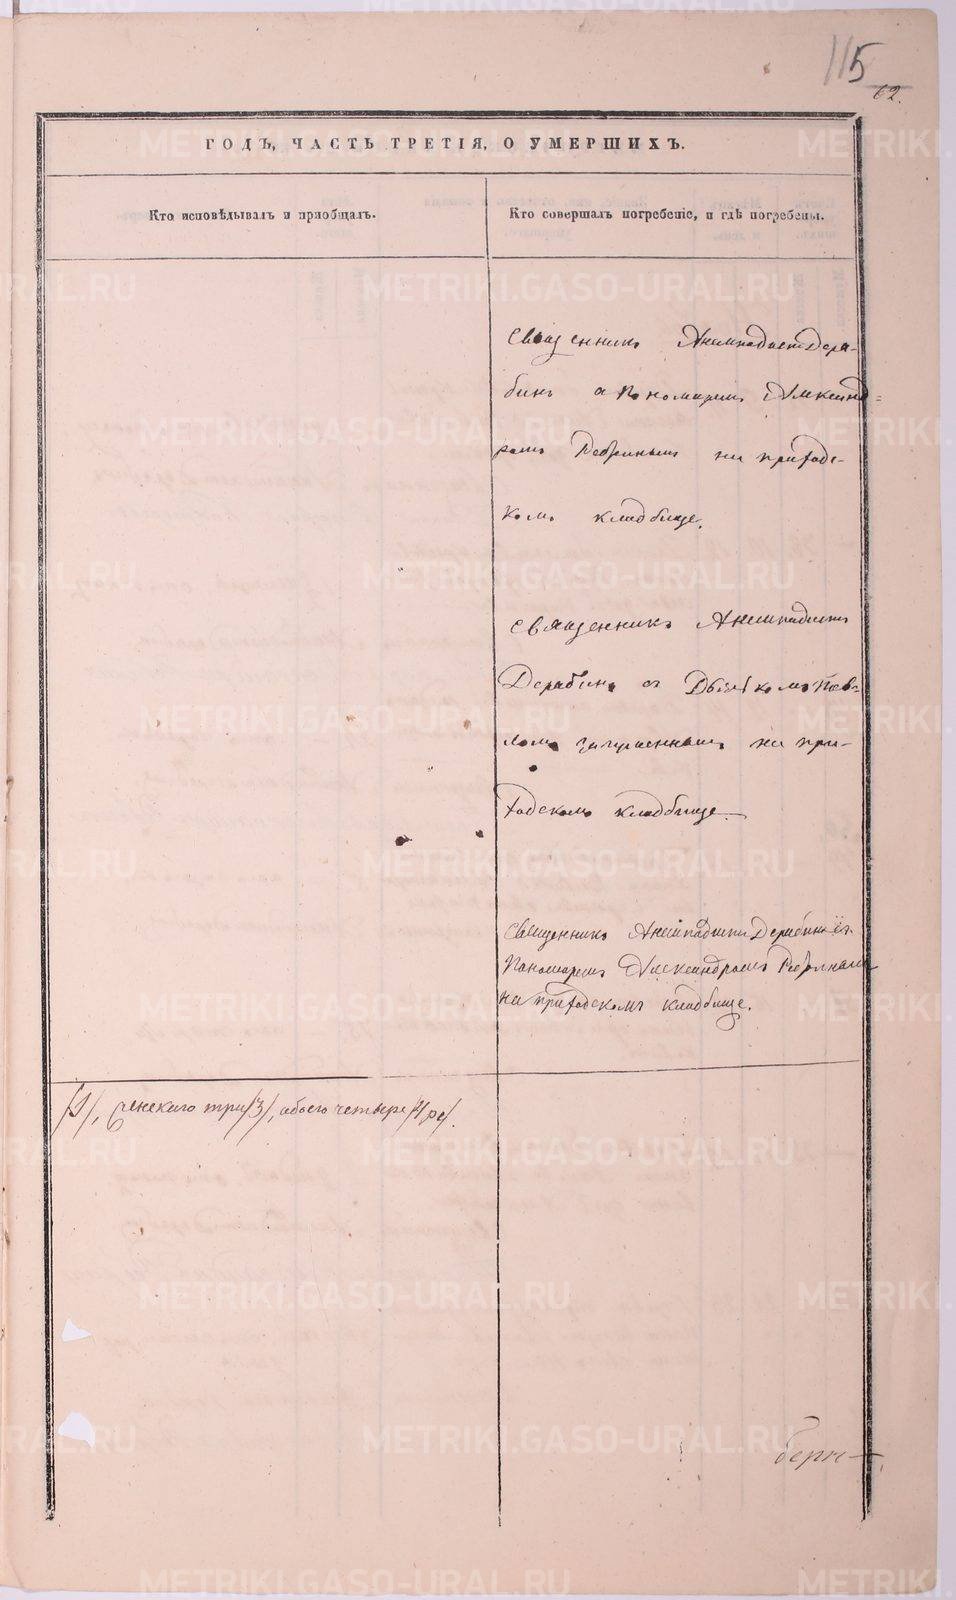 115
62.
ГОДЪ, ЧАСТЬ ТРЕТІЯ, О УМЕРШИХЪ.
Кто исповѣдывалъ и пріобщалъ.
Кто совершалъ погребеніе, и гдѣ погребены.
Священникъ Анемподистъ Дера-
бинъ с Пономаремъ Александ=
ромъ на приходс-
комъ кладбище.
Священникъ Анемподистъ
Дерабинъ съ Дьячкомъ Пав-
ломъ на при-
ходскомъ кладбище.
Священникъ Анемподистъ Дерабинъ съ
Пономаремъ Александромъ
на приходскомъ кладбище.
/1/, женскаго три /3/, обоего четыре /4/
METRIKI.GASO-URAL.RU